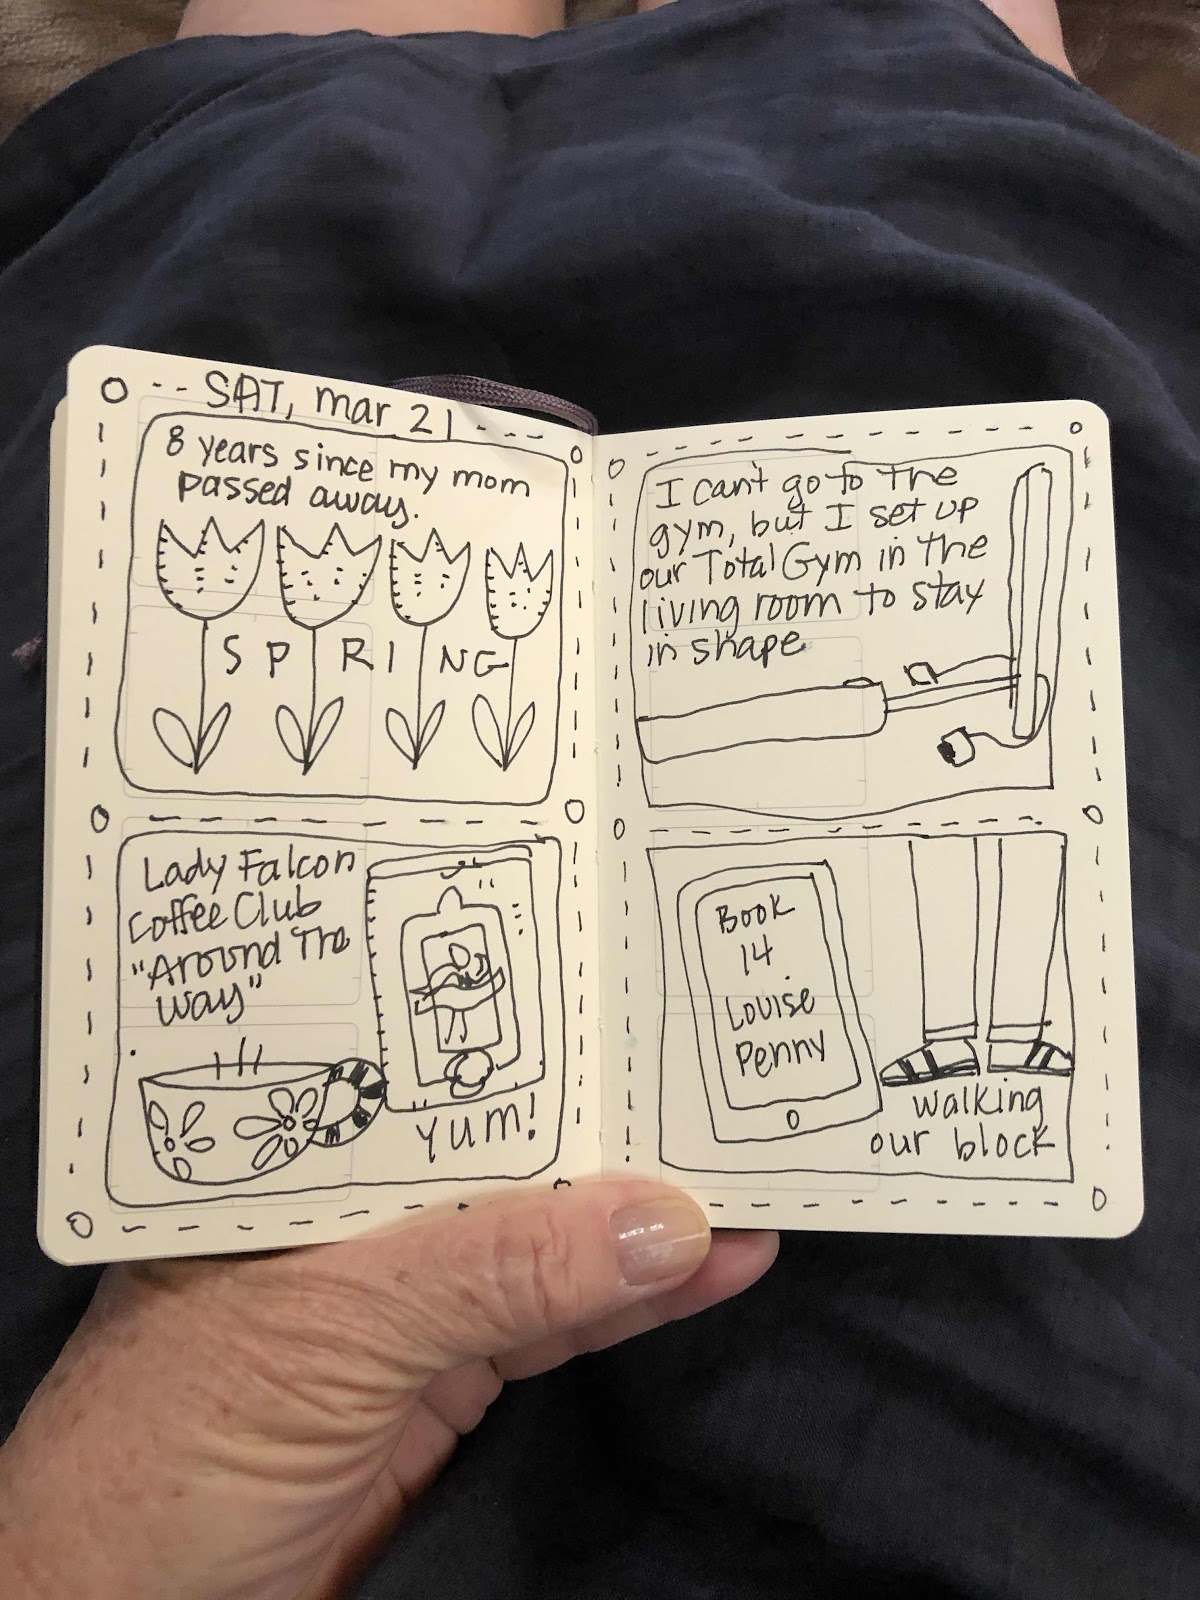 SAT, mar 21
8 years since my mom
passed away.
SPRING
Lady Falcon
Coffee Club
"Around The
Way"
YUM!
I can't go to the
gym, but I set up
our Total Gym in the
living room to stay
in shape
Book
14
Louise
Penny
walking
our block